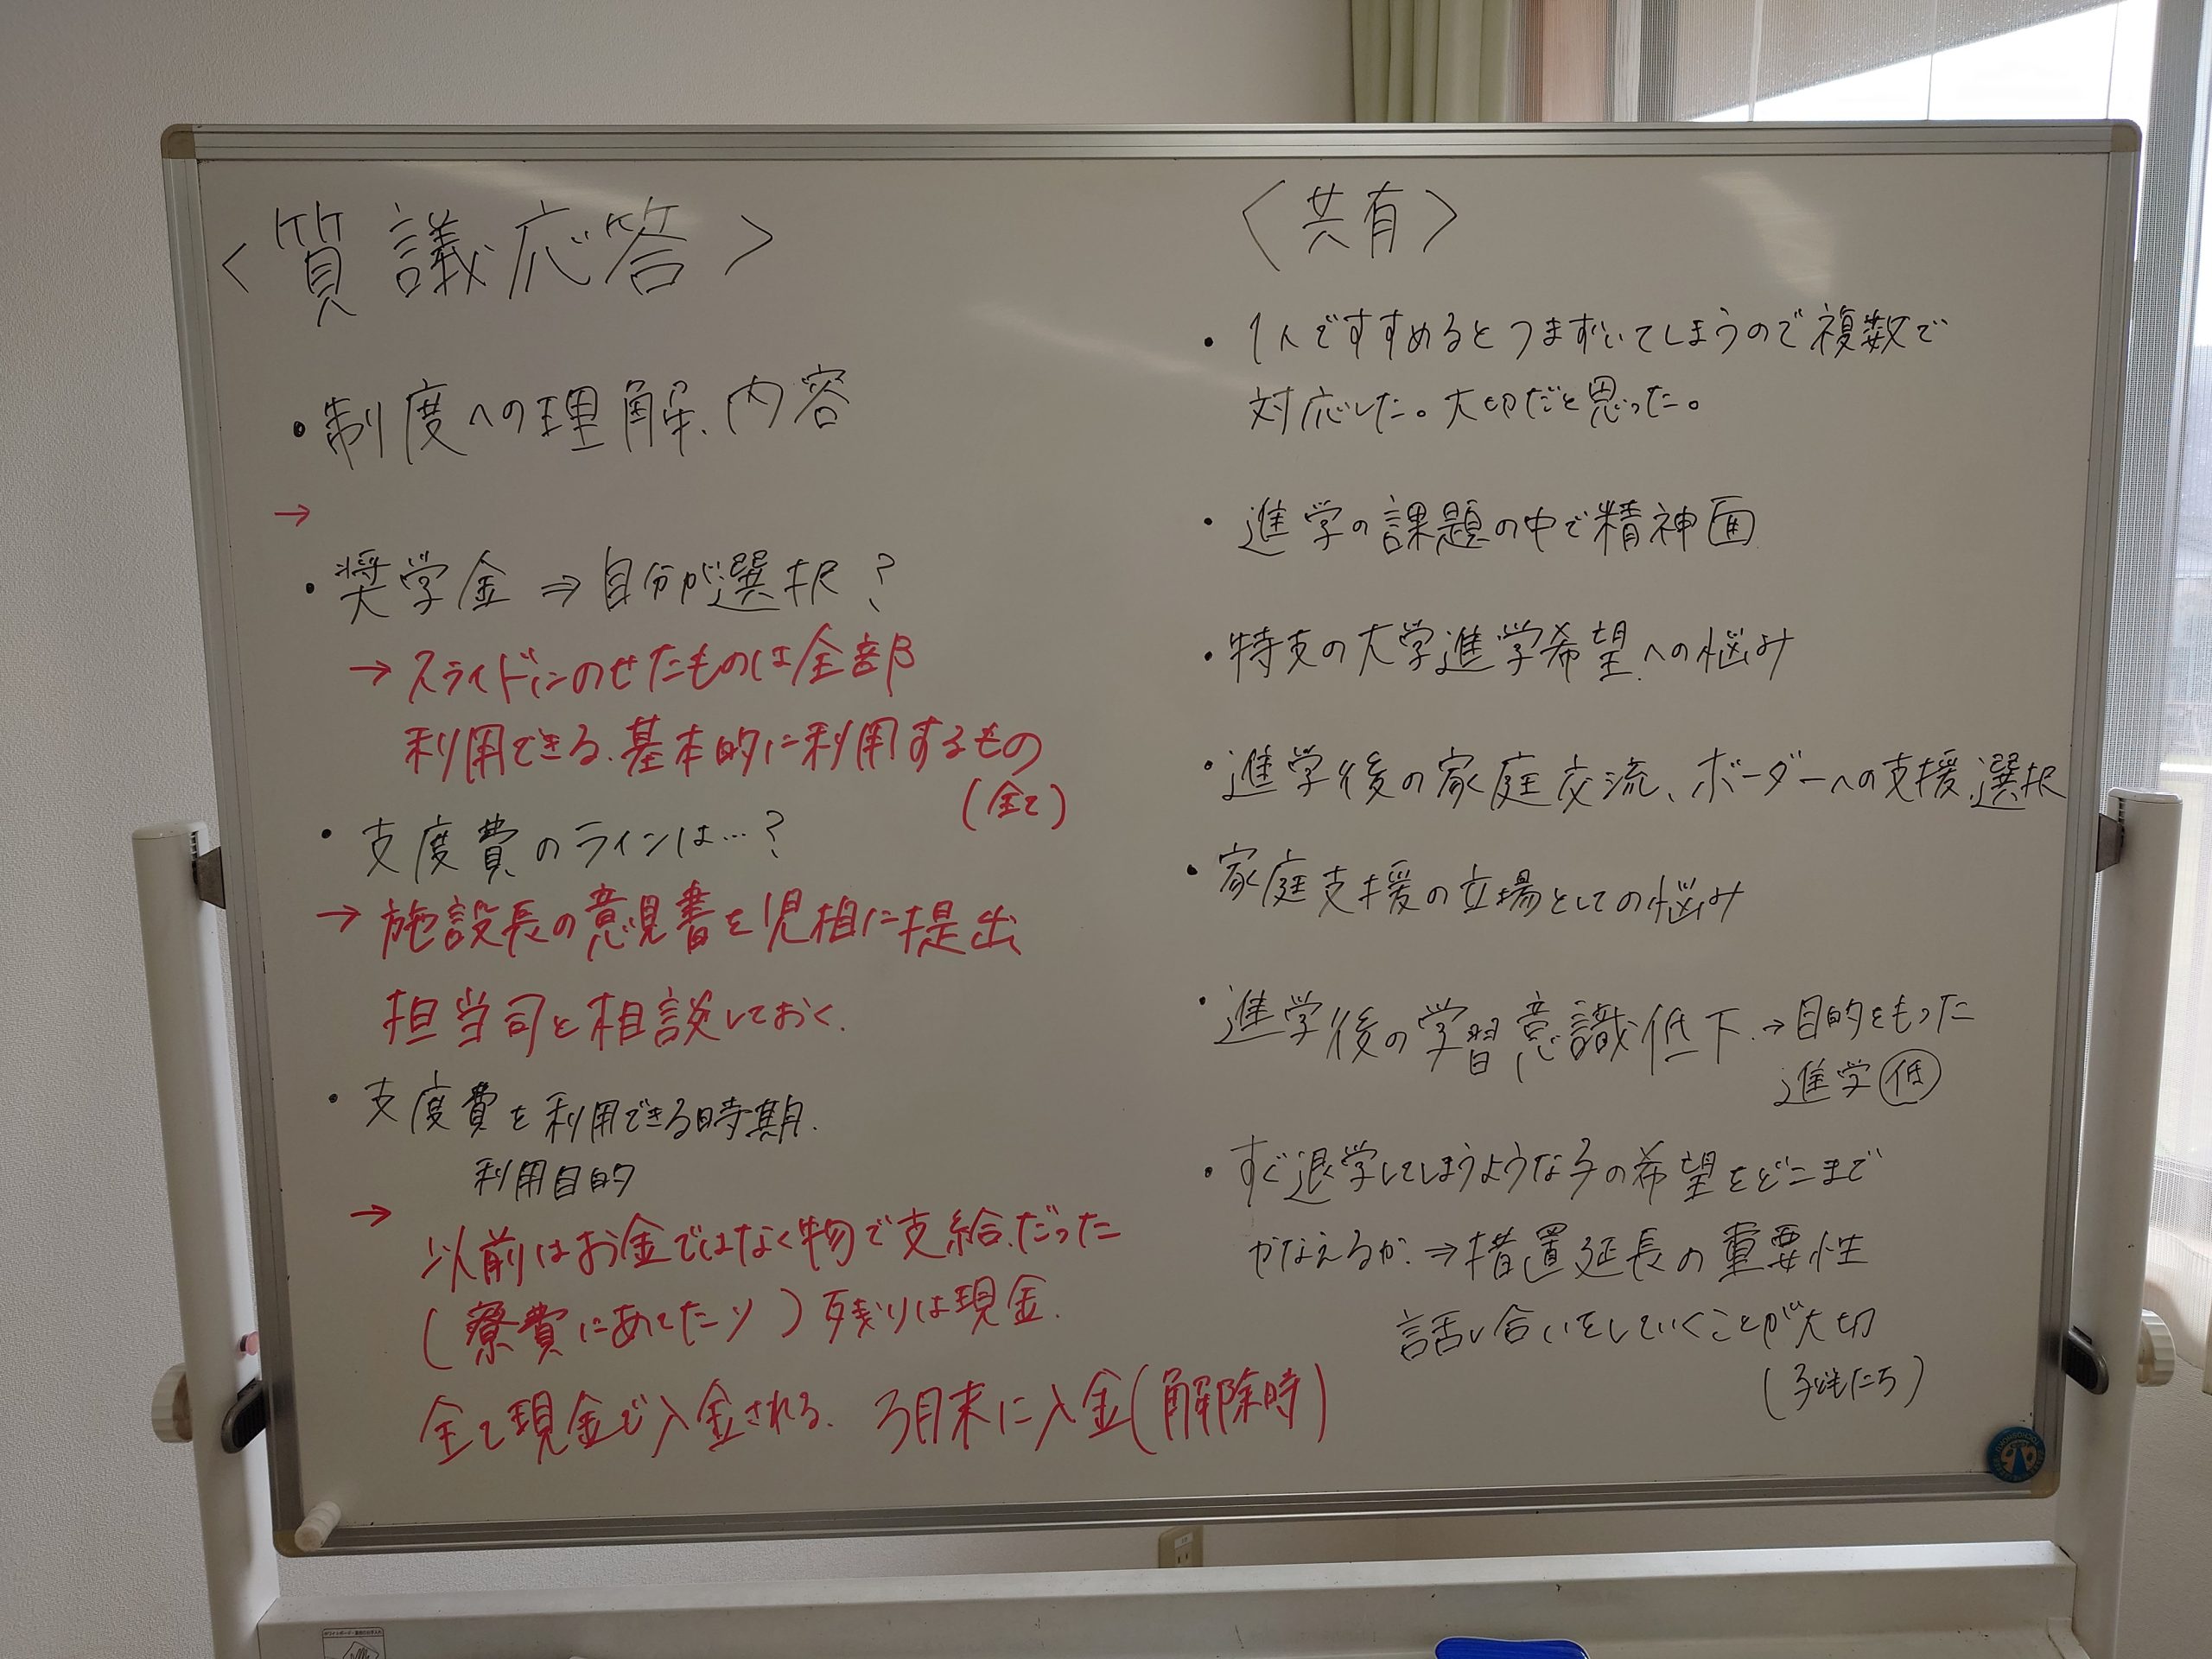 〈質議応答〉
・制度への理解、内容
→
・奨学金⇒自分が選択?
→スライドにのせたものは全部
利用できる、基本的に利用するもの
(全て)
・支度費のラインは…?
→施設長の意見書を児相に提出
担当司と相談しておく、
・支度費を利用できる時期、
利用目的
→
以前はお金ではなく物で支給、だった
(寮費にあてたり)残りは現金、
全て現金で入金される、3月末に入金(解除時)
〈共有〉
・1人ですすめるとつまずいてしまうので複数で
対応した。大切だと思った。
・進学の課題の中で精神面
・特支の大学進学希望への悩み
・進学後の家庭交流、ボーダーへの支援、選択
・家庭支援の立場としての悩み
・進学後の学習意識低下、→目的をもった
進学低
・すぐ退学してしまうような子の希望をどこまで
かなえるか、⇒措置延長の重要性
話し合いをしていくことが大切
(子どもたち)